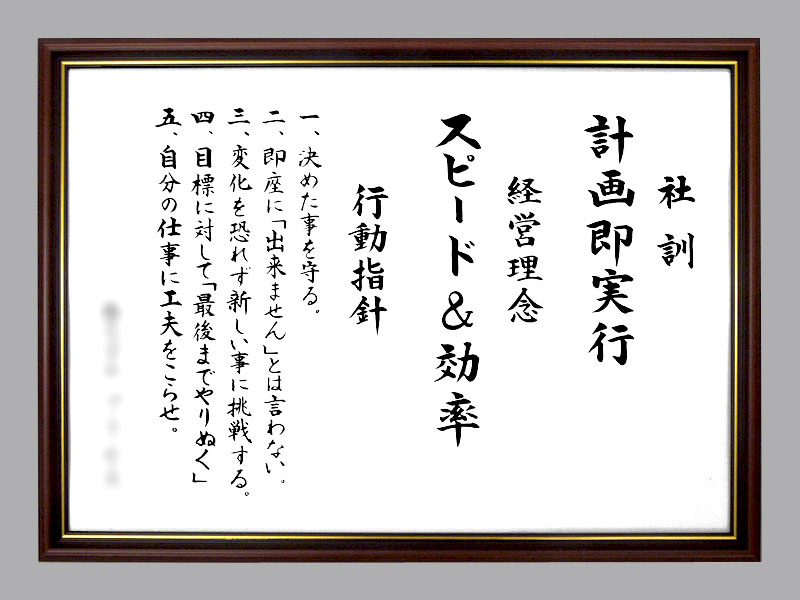 社訓
計画即実行
経営理念
スピード&効率
行動指針
一、決めた事を守る。
二、即座に「出来ません」とは言わない。
三、変化を恐れず新しい事に挑戦する。
四、目標に対して「最後までやりぬく」
五、自分の仕事に工夫をこらせ。